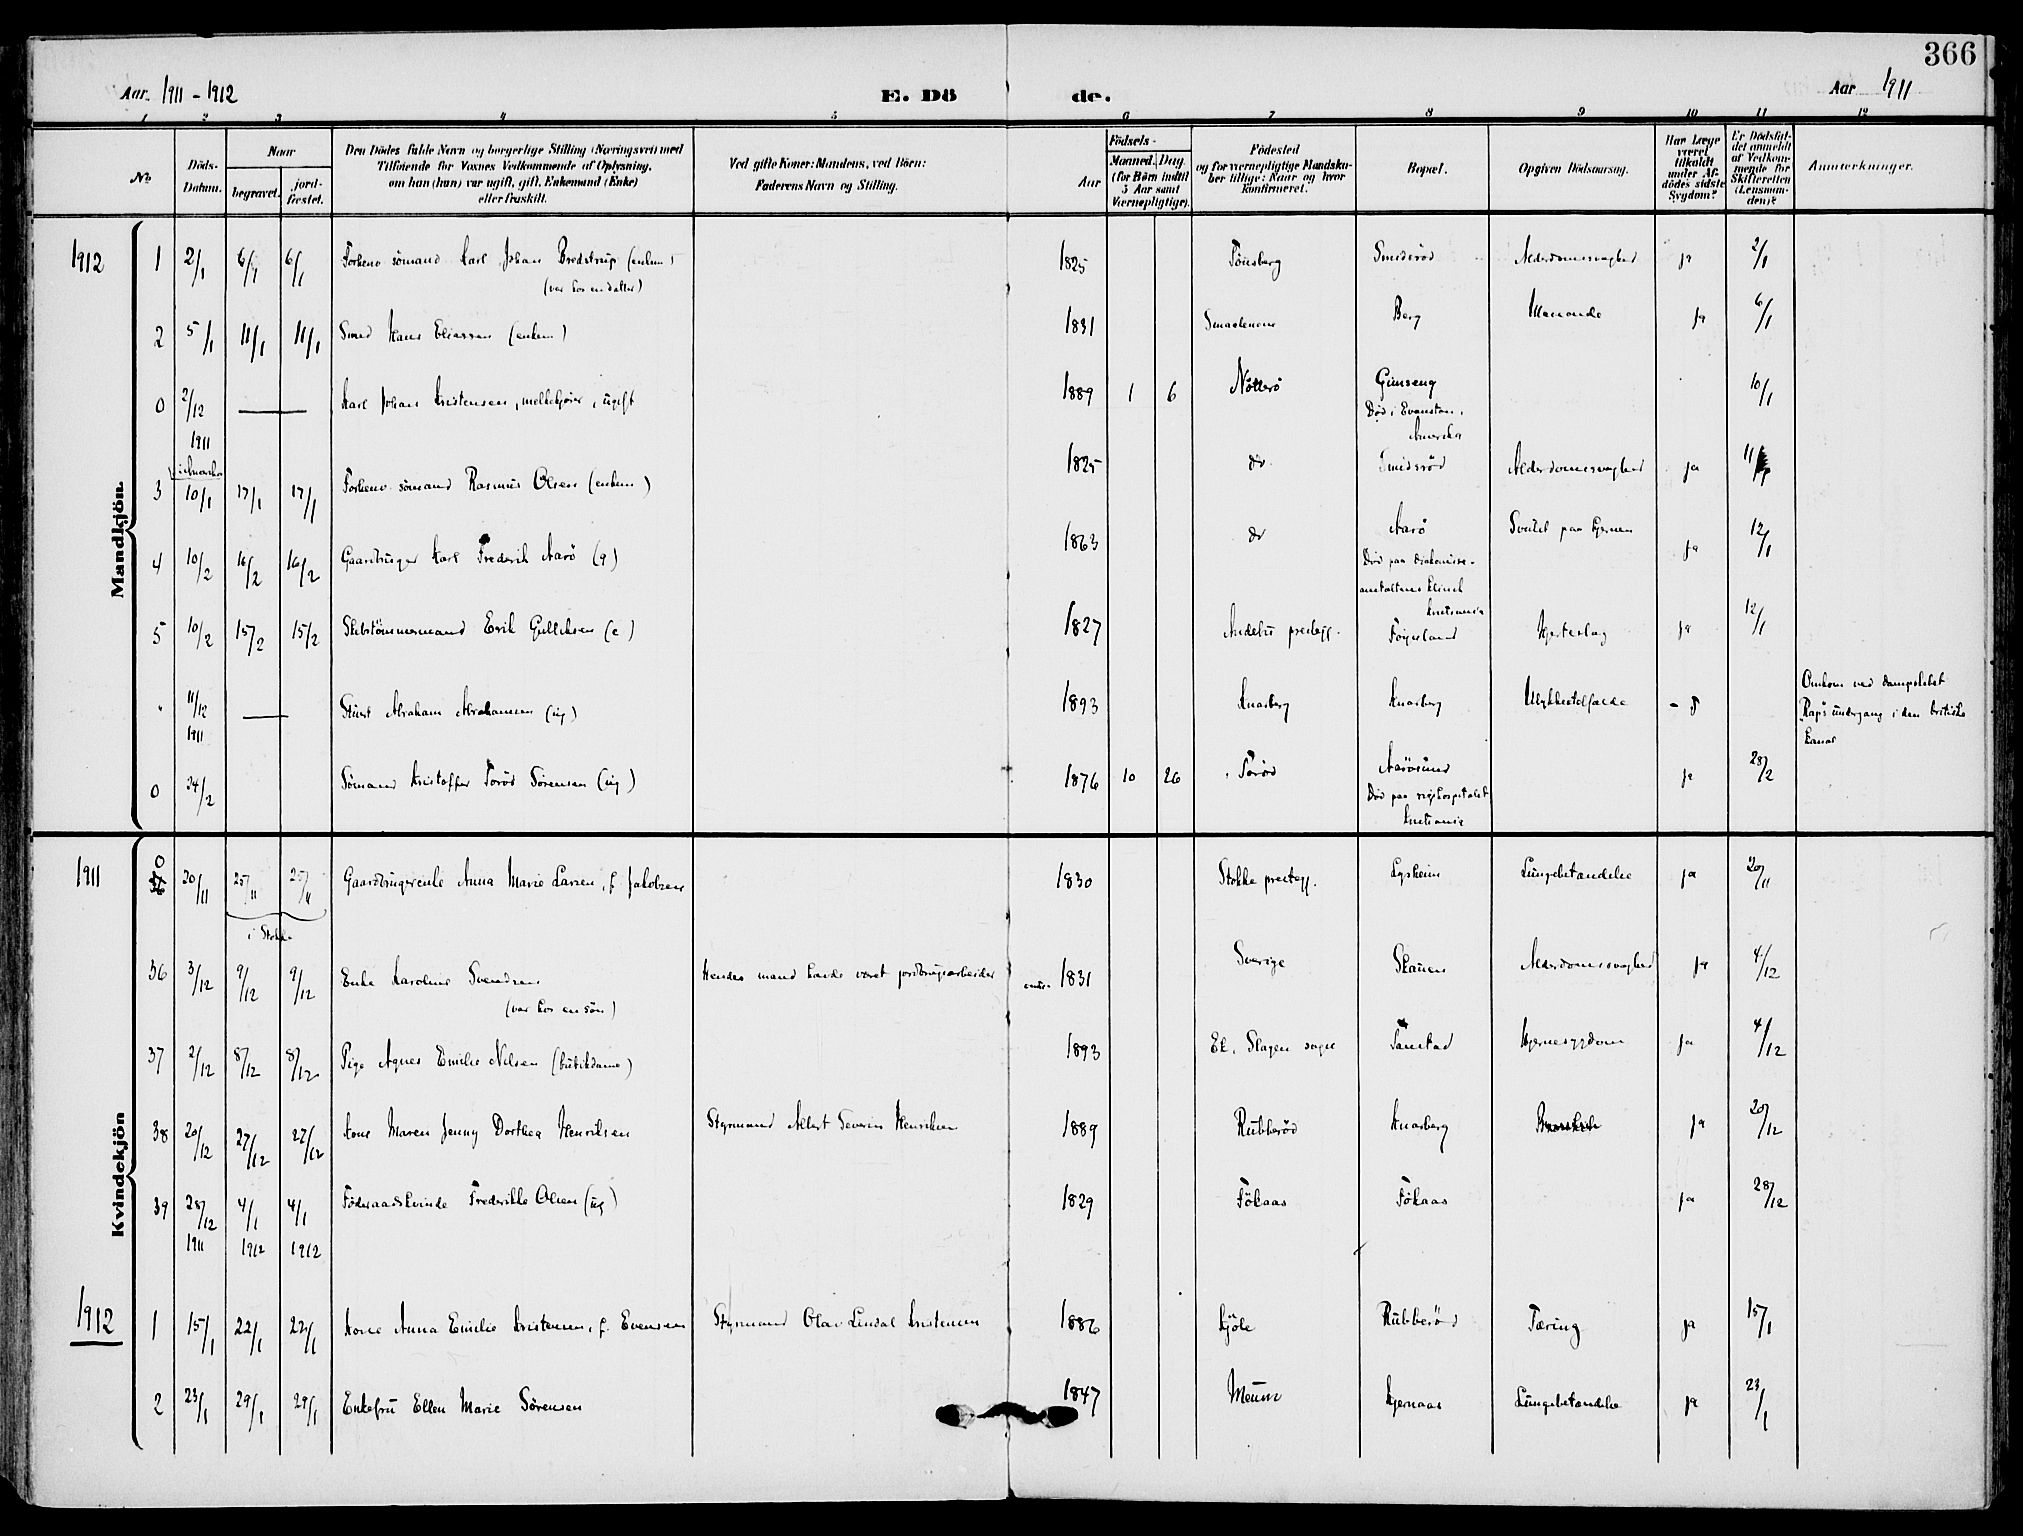 366
Aar 1911 - 1912
E. Dö de.
Aar 1911
1 2 3 4 5 6 7 8 9 10 11 12
No.
Döds-Datum.
Naar
begravet.
jord-fæstet.
Den Dödes fulde Navn og borgerlige Stilling (Næringsvei) med
Tilföiende for Voxnes Vedkommende af Oplysning,
om han (hun) var ugift, gift, Enkemand (Enke)
eller fraskilt.
Ved gifte Koner: Mandens, ved Börn:
Faderens Navn og Stilling.
Födsels-
Aar
Maaned. Dag
(for Börn indtil
5 Aar samt
Værnepligtige).
Födested
og for værnepligtige Mandska-
ber tillige: Naar og hvor
Konfirmeret.
Bopæl.
Opgiven Dödsaarsag.
Har Læge
været
tilkaldt
under Af-
dödes sidste
Sygdom?
Er Dödsfal-
det anmeldt
af Vedkom-
mende for
Skifteretten
(Lensman-
den)?
Anmærkninger.
Mandkjön
1912 1 2/1 6/1 6/1 Forhenv sömand Karl Johan Bredstrup (enkem) 1825 Tönsberg Smidsröd Alderdomssvaghed ja 2/1
(var hos en datter)
2 5/1 11/1 11/1 Smed Hans Eliassen (enkem) 1831 Berg ja 6/1
0 2/12 1911 Karl Johan Kristensen, melkekjörer, ugift 1889 1 6 Nötterö Död i Evanston, Amerika 10/1
i Amerika
3 10/1 17/1 17/1 Forhenv. sömand Rasmus Olsen (enkem) 1825 do Smidsröd Alderdomssvaghed ja
4 10/2 16/2 16/2 Gaardbruger Karl Frederik Aarö (g) 1863 do Aarö ja 12/1
Död paa diakonisse-
anstaltens klinik
Kristiania
5 10/2 15/2 15/2 Skibstömmermand Erik Gulliksen (e) 1827 Andebu prestegj. Föinland Hjerteslag ja 12/1
" 11/12 1911 Stuert Abraham Abrahamsen (ug) 1893 Knarberg Knarberg Ulykkestilfælde
Omkom ved dampskibet
"Rap"s undergang i den britiske
kanal
0 24/2 Sömand Kristoffer Toröd Sörensen (ug) 1876 10 26 Toröd Aarösund ja 28/2
Död paa rigshospitalet
Kristiania
Kvindekjön
1911 0 20/11 25/11 25/11 Gaardbrugerenke Anna Marie Larsen, f. Jakobsen 1830 Stokke prestegj. Lysheim Lungebetændelse ja 20/11
i Stokke
36 3/12 9/12 9/12 Enke Karoline Svendsen Hendes mand havde været jordbrugsarbeider 1831 Sverige Skauen Alderdomssvaghed ja 4/12
(var hos en sön)
37 2/12 8/12 8/12 Pige Agnes Emilie Nilsen (butikdame) 1893 Ek, Slagen sogn Tanstad Hjernesygdom ja 4/12
38 20/12 27/12 27/12 Kone Maren Jenny Dorthea Henriksen Styrmand Albert Severin Henriksen 1889 Rubberöd Knarberg ja 20/12
39 28/12 1911 4/1 1912 4/1 1912 Föderaadskvinde Frederikke Olsen (ug) 1829 Fökaas Fökaas ja 28/12
1912 1 15/1 22/1 22/1 Kone Anna Emilie Kristensen, f. Evensen Styrmand Olav Lindal Kristensen 1886 Kjöle Rubberöd Tæring ja 15/1
2 23/1 29/1 29/1 Enkefru Ellen Marie Sörensen 1847 Meum Kjernaas Lungebetændelse ja 23/1